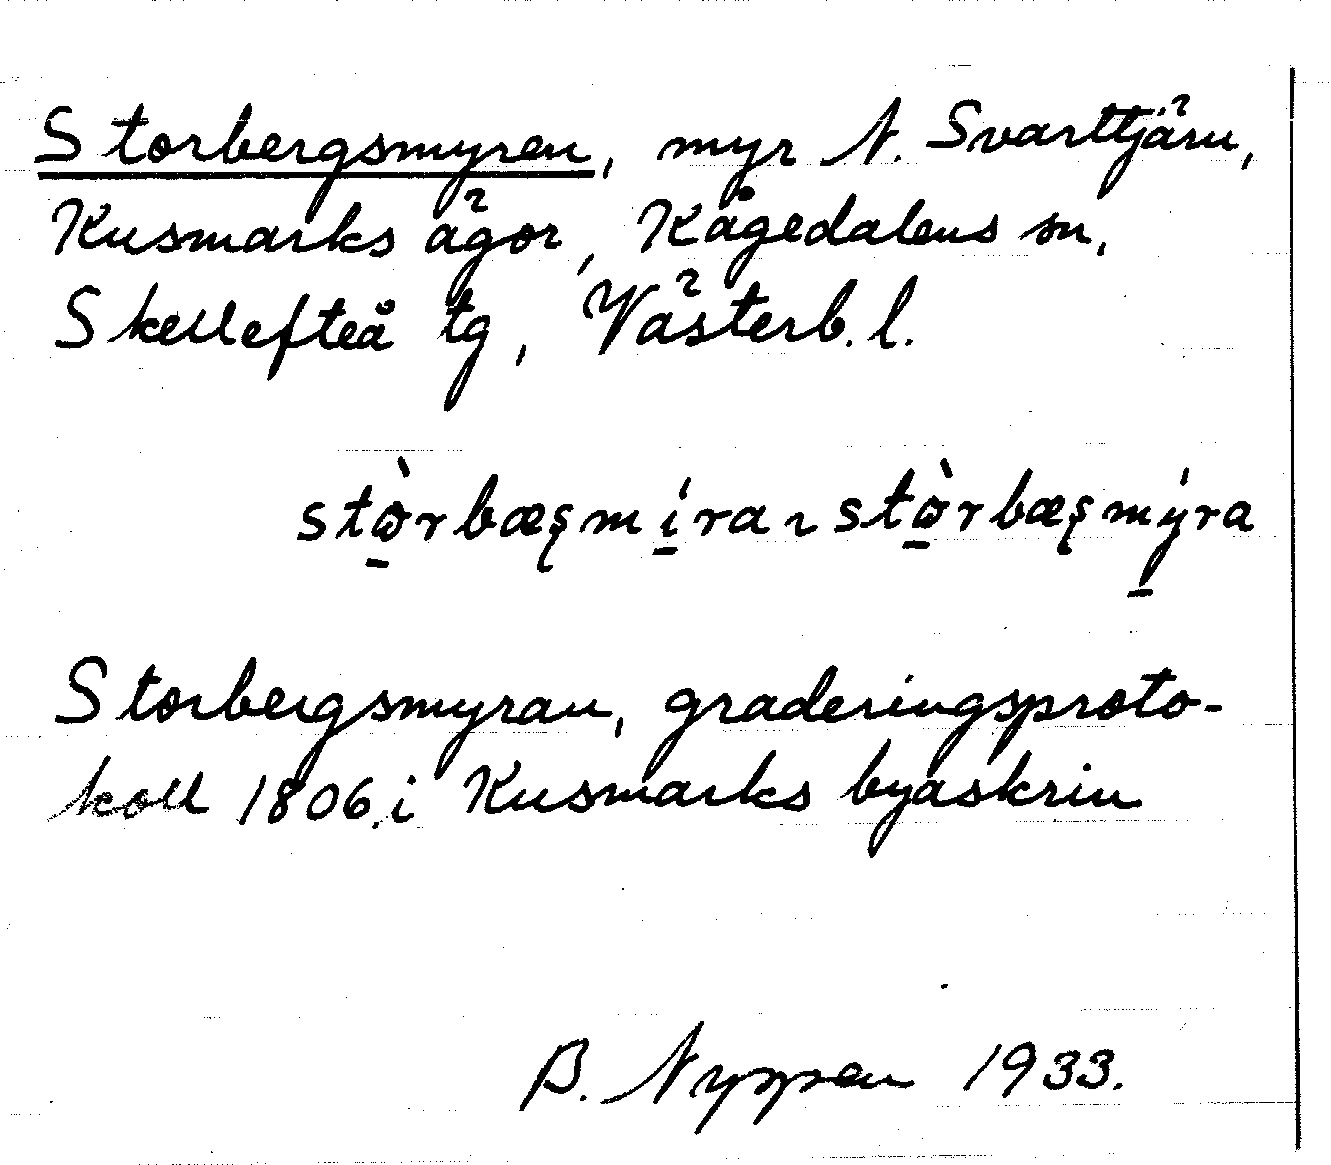 Storbergsmyren, myr N. Svarttjärn,
Kusmarks ägor, Kågedalens sn,
Skellefteå tg, Västerb. l.
stò̱rbæʂmí̱ra ~ stò̱rbæʂmý̱ra
Storbergsmyran, graderingsproto-
koll 1806 i Kusmarks byaskrin
B. Nyppen 1933.